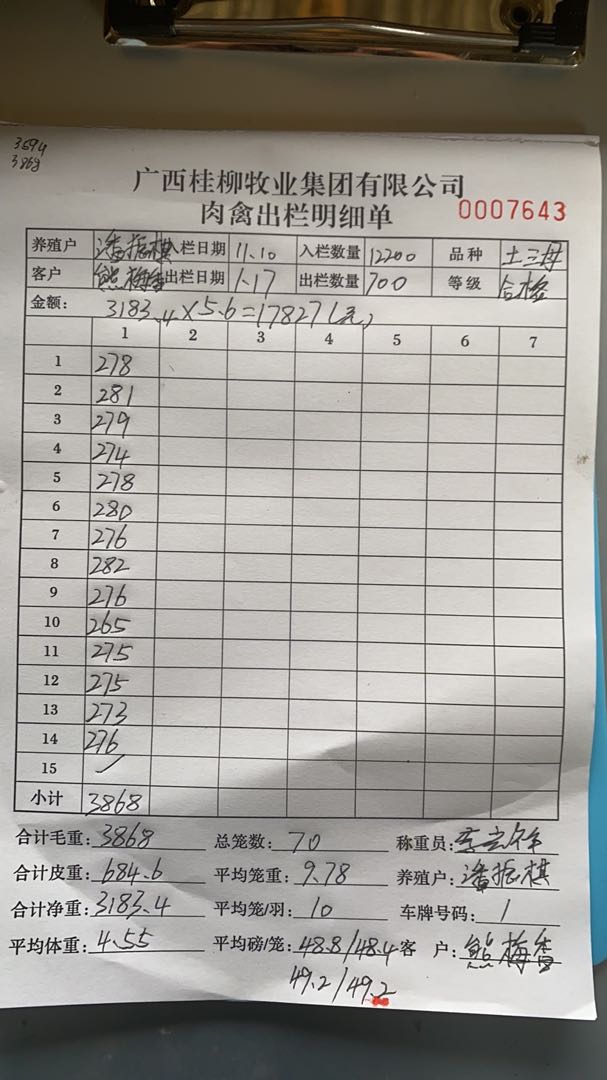 3594
3868
广西桂柳牧业集团有限公司
肉禽出栏明细单 0007643
养殖户 潘振棋 入栏日期 11.10 入栏数量 12200 品种 土三母
客户 熊梅香 出栏日期 1.17 出栏数量 700 等级 合格
金额: 3183.4×5.6=17827(元)
1 2 3 4 5 6 7
1 278
2 281
3 279
4 274
5 278
6 280
7 276
8 282
9 276
10 265
11 275
12 275
13 273
14 276
15
小计 3868
合计毛重: 3868 总笼数: 70 称重员:
合计皮重: 684.6 平均笼重: 9.78 养殖户: 潘振棋
合计净重: 3183.4 平均笼/羽: 10 车牌号码: 1
平均体重: 4.55 平均磅/笼: 48.8/48.4 客 户: 熊梅香
49.2/49.2